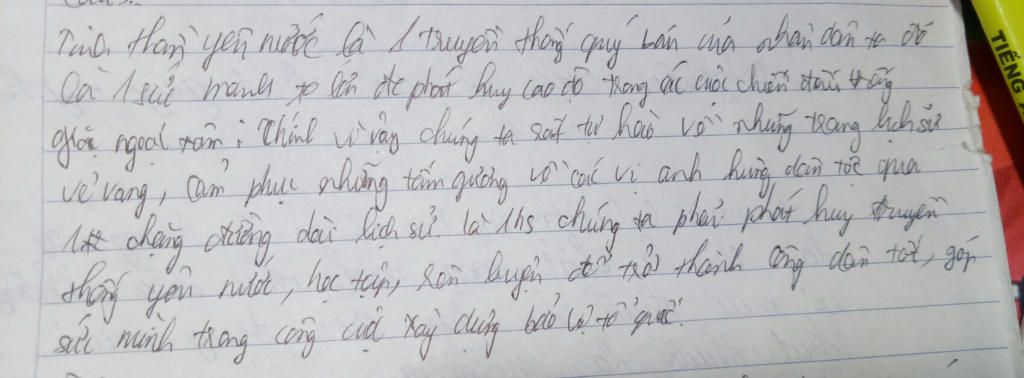 Tinh thần yêu nước là 1 truyền thống quý báu của nhân dân ta đó
là 1 sức mạnh to lớn đc phát huy cao độ trong các cuộc chiến đấu chống
giặc ngoại xâm. Chính vì vậy chúng ta rất tự hào về những trang lịch sử
vẻ vang, cảm phục những tấm gương về các vị anh hùng dân tộc qua
1 chặng đường dài lịch sử là 1 hs chúng ta phải phát huy truyền
thống yêu nước, học tập, rèn luyện để trở thành công dân tốt, góp
sức mình trong công cuộc xây dựng bảo vệ tổ quốc.
TIẾNG